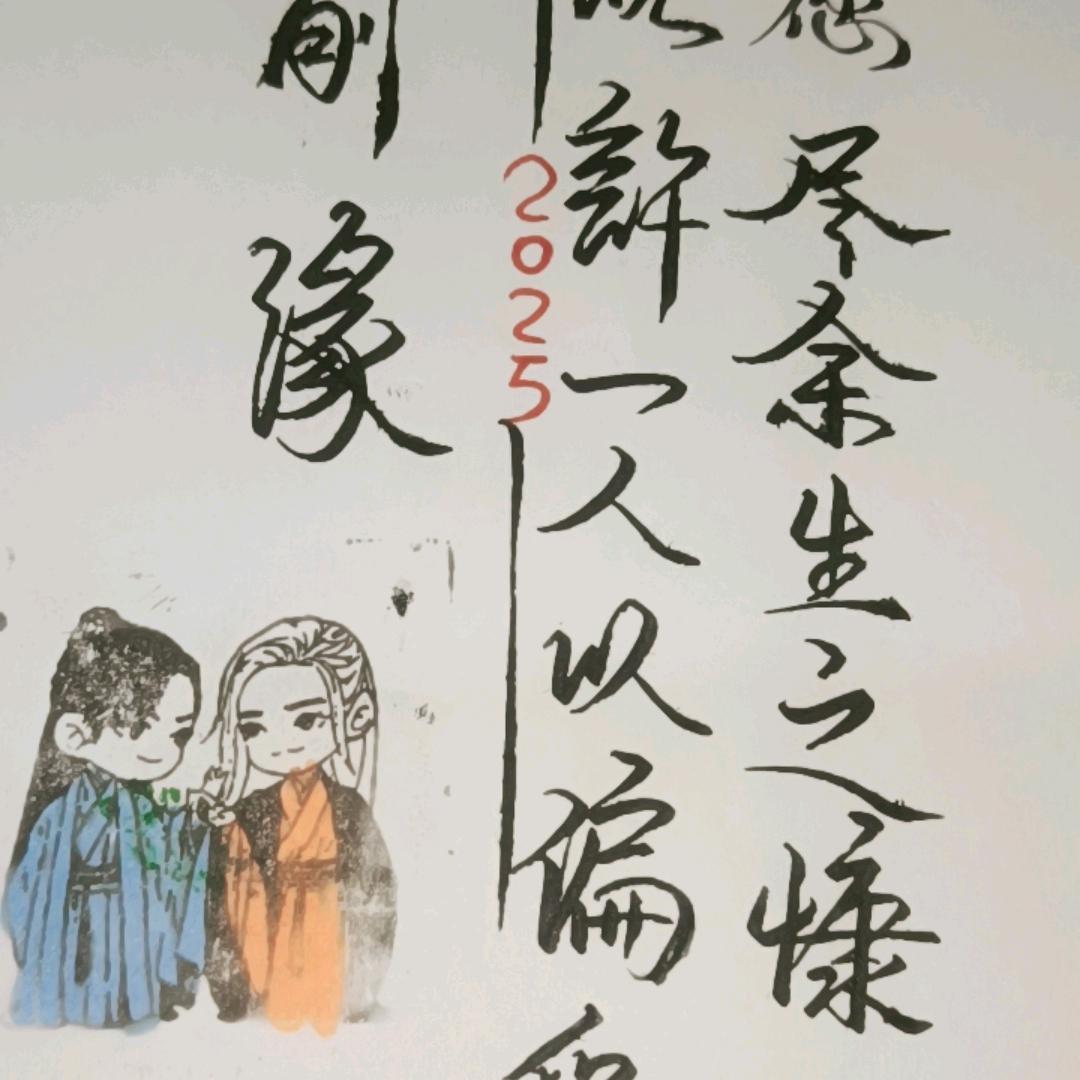 尽余生之慷
許一人以偏
2025
缘